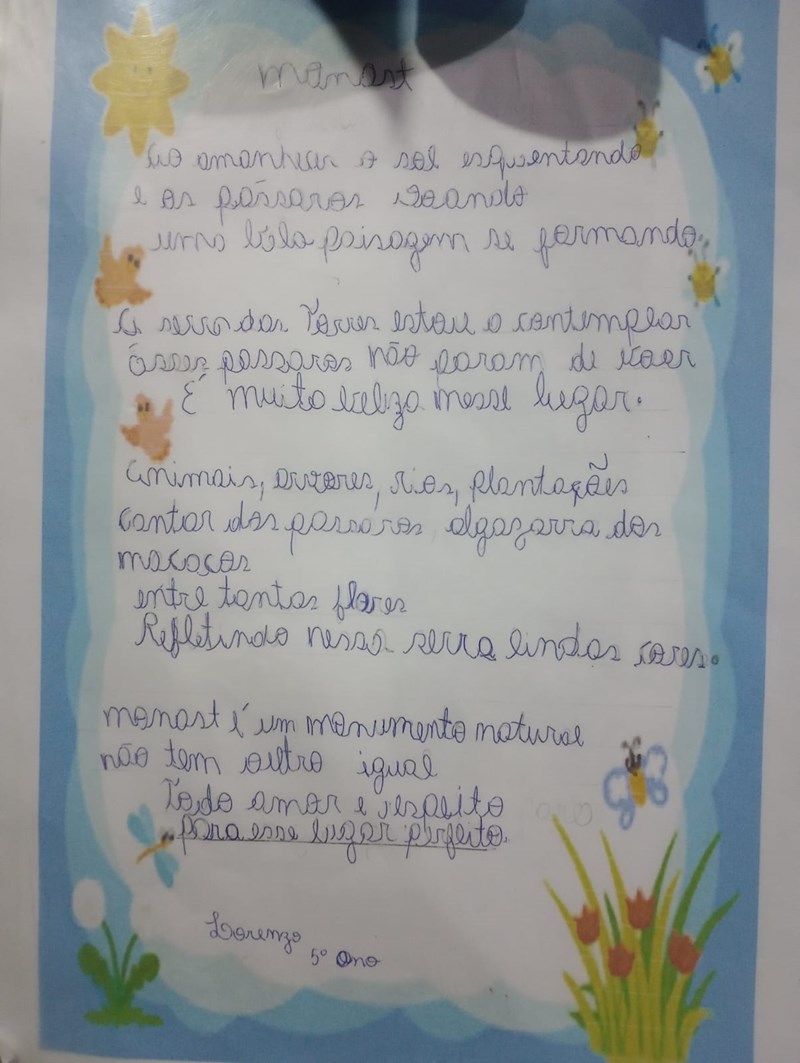 monast
Ao amanhecer o sol esquentando
e os pássaros voando
uma bela paisagem se formando.
A serra das Torres estou a contemplar
Esses passaros não param de voar
É muita beleza nesse lugar.
Animais, arvores, rios, plantações
cantar dos passaros algazarra dos
macacos
entre tantas flores
Refletindo nessa serra lindas cores.
monast é um monumento natural
não tem outro igual
Todo amor e respeito
para esse lugar perfeito.
Lorenzo
5º ano